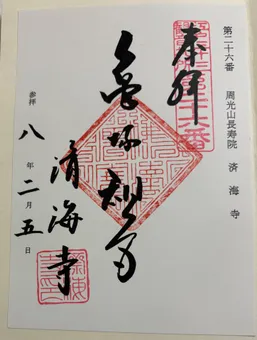 第二十六番　周光山長寿院　済海寺
奉拝
龜塚観音
済海寺
参拝　八年二月五日